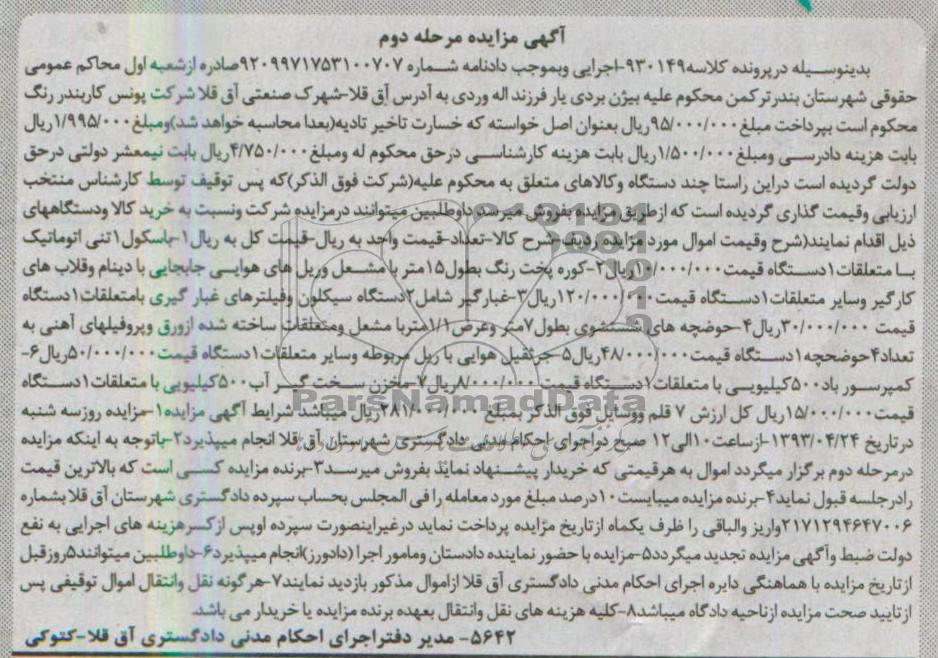 آگهی مزایده مرحله دوم
بدینوسیله درپرونده کلاسه۹۳۰۱۴۹-اجرایی وبموجب دادنامه شماره ۹۲۰۹۹۷۱۷۵۳۱۰۰۷۰۷صادره ازشعبه اول محاکم عمومی
حقوقی شهرستان بندرترکمن محکوم علیه بیژن بردی یار فرزند اله وردی به آدرس آق قلا-شهرک صنعتی آق قلا شرکت پونس کاربندر رنگ
محکوم است بپرداخت مبلغ۹۵/۰۰۰/۰۰۰ریال بعنوان اصل خواسته که خسارت تاخیر تادیه(بعدا محاسبه خواهد شد)ومبلغ۱/۹۹۵/۰۰۰ریال
بابت هزینه دادرسی ومبلغ۱/۵۰۰/۰۰۰ریال بابت هزینه کارشناسی درحق محکوم له ومبلغ۴/۷۵۰/۰۰۰ریال بابت نیمعشر دولتی درحق
دولت گردیده است دراین راستا چند دستگاه وکالاهای متعلق به محکوم علیه(شرکت فوق الذکر)که پس توقیف توسط کارشناس منتخب
ارزیابی وقیمت گذاری گردیده است که ازطریق مزایده بفروش میرسد داوطلبین میتوانند درمزایده شرکت ونسبت به خرید کالا ودستگاههای
ذیل اقدام نمایند(شرح وقیمت اموال مورد مزایده ردیف-شرح کالا-تعداد-قیمت واحد به ریال-قیمت کل به ریال۱-باسکول۱تنی اتوماتیک
با متعلقات۱دستگاه قیمت۱۰/۰۰۰/۰۰۰ریال۲-کوره پخت رنگ بطول۱۵متر با مشعل وریل های هوایی جابجایی با دینام وقلاب های
کارگیر وسایر متعلقات۱دستگاه قیمت۱۲۰/۰۰۰/۰۰۰ریال۳-غبارگیر شامل۲دستگاه سیکلون وفیلترهای غبار گیری بامتعلقات۱دستگاه
قیمت ۳۰/۰۰۰/۰۰۰ریال۴-حوضچه های شستشوی بطول۷متر وعرض۱/۱متربا مشعل ومتعلقات ساخته شده ازورق وپروفیلهای آهنی به
تعداد۴حوضحچه۱دستگاه قیمت۴۸/۰۰۰/۰۰۰ریال۵-جرثقیل هوایی با ریل مربوطه وسایر متعلقات۱دستگاه قیمت۵۰/۰۰۰/۰۰۰ریال۶-
کمپرسور باد۵۰۰کیلیویی با متعلقات۱دستگاه قیمت ۸/۰۰۰/۰۰۰ریال۷-مخزن سخت گیر آب۵۰۰کیلیویی با متعلقات۱دستگاه
قیمت۱۵/۰۰۰/۰۰۰ریال کل ارزش ۷ قلم ووسایل فوق الذکر بمبلغ ۲۸۱/۰۰۰/۰۰۰ریال میباشد شرایط آگهی مزایده۱-مزایده روزسه شنبه
درتاریخ ۱۳۹۳/۰۴/۲۴-ازساعت۱۰الی۱۲ صبح دراجرای احکام مدنی دادگستری شهرستان آق قلا انجام میپذیرد۲-باتوجه به اینکه مزایده
درمرحله دوم برگزار میگردد اموال به هرقیمتی که خریدار پیشنهاد نماید بفروش میرسد۳-برنده مزایده کسی است که بالاترین قیمت
رادرجلسه قبول نماید۴-برنده مزایده میبایست۱۰درصد مبلغ مورد معامله را فی المجلس بحساب سپرده دادگستری شهرستان آق قلا بشماره
۲۱۷۱۲۹۴۶۴۷۰۰۶واریز والباقی را ظرف یکماه ازتاریخ مزایده پرداخت نماید درغیراینصورت سپرده اوپس ازکسرهزینه های اجرایی به نفع
دولت ضبط وآگهی مزایده تجدید میگردد۵-مزایده با حضور نماینده دادستان ومامور اجرا (دادورز)انجام میپذیرد۶-داوطلبین میتوانند۵روزقبل
ازتاریخ مزایده با هماهنگی دایره اجرای احکام مدنی دادگستری آق قلا ازاموال مذکور بازدید نمایند۷-هرگونه نقل وانتقال اموال توقیفی پس
ازتایید صحت مزایده ازناحیه دادگاه میباشد۸-کلیه هزینه های نقل وانتقال بعهده برنده مزایده یا خریدار می باشد.
۵۶۴۲- مدیر دفتراجرای احکام مدنی دادگستری آق قلا-کتوکی
ParsNamadData